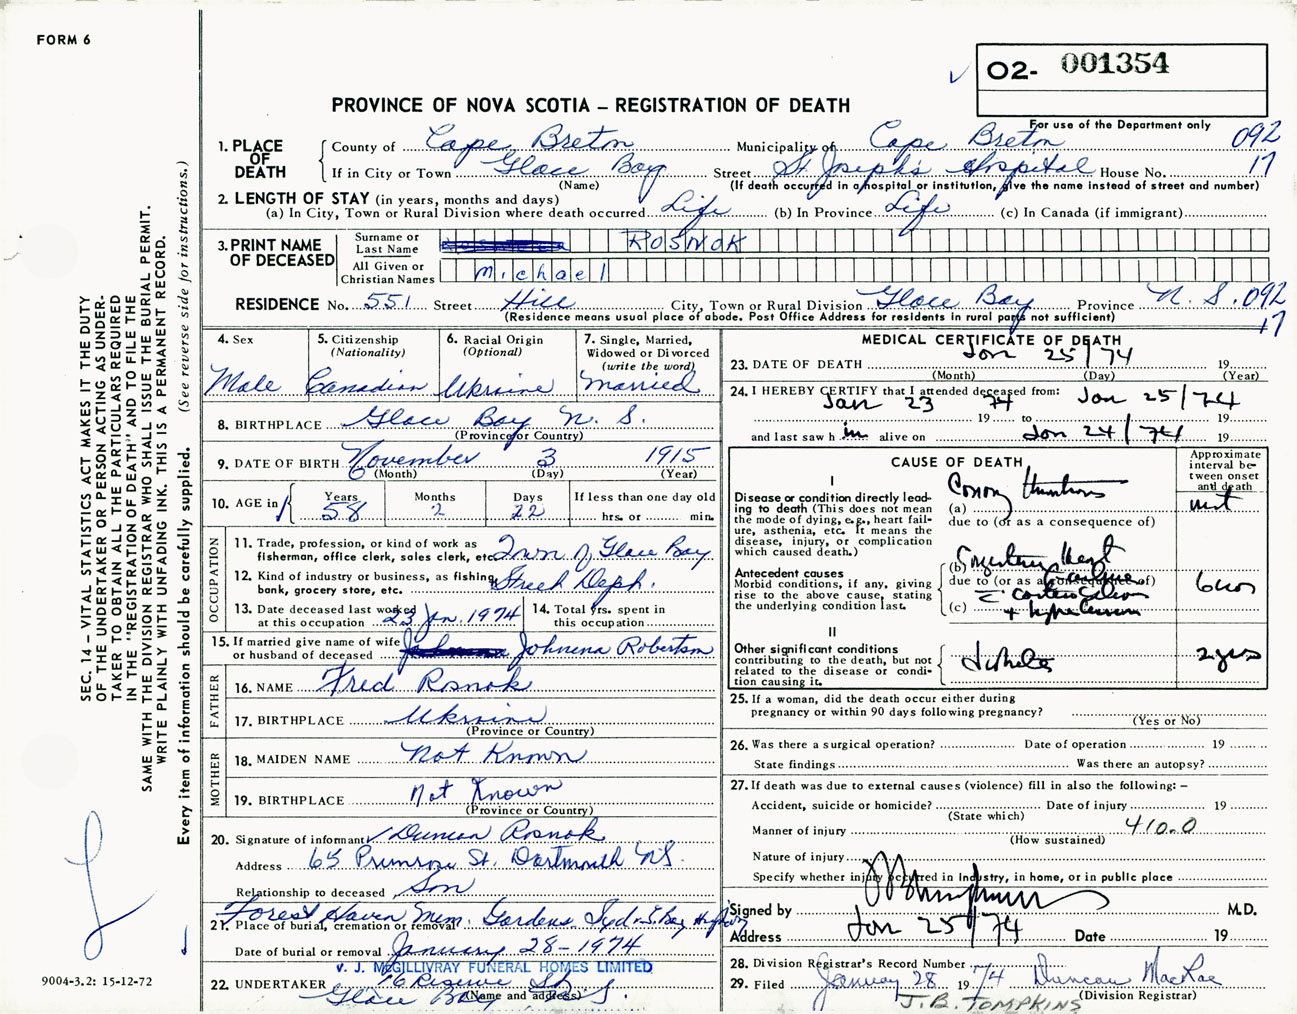 FORM 6
O2- 001354
PROVINCE OF NOVA SCOTIA – REGISTRATION OF DEATH
For use of the Department only
092
17
1. PLACE OF DEATH
County of Cape Breton Municipality of Cape Breton
If in City or Town Glace Bay Street St Joseph's Hospital House No.
(Name) (If death occurred in a hospital or institution, give the name instead of street and number)
2. LENGTH OF STAY (in years, months and days)
(a) In City, Town or Rural Division where death occurred Life (b) In Province Life (c) In Canada (if immigrant)
3. PRINT NAME OF DECEASED
Surname or Last Name ROSNOK
All Given or Christian Names Michael
RESIDENCE No. 551 Street Hill City, Town or Rural Division Glace Bay Province N. S. 092
17
(Residence means usual place of abode. Post Office Address for residents in rural parts not sufficient)
4. Sex
Male
5. Citizenship
(Nationality)
Canadian
6. Racial Origin
(Optional)
Ukraine
7. Single, Married,
Widowed or Divorced
(write the word)
Married
8. BIRTHPLACE Glace Bay N. S.
(Province or Country)
9. DATE OF BIRTH November 3 1915
(Month) (Day) (Year)
10. AGE in Years 58 Months 2 Days 22 If less than one day old
hrs. or min.
OCCUPATION
11. Trade, profession, or kind of work as
fisherman, office clerk, sales clerk, etc. Town of Glace Bay
12. Kind of industry or business, as fishing,
bank, grocery store, etc. Street Deph.
13. Date deceased last worked
at this occupation 23 Jan. 1974
14. Total yrs. spent in
this occupation
15. If married give name of wife
or husband of deceased Johnena Robertson
FATHER
16. NAME Fred Rosnok
17. BIRTHPLACE Ukraine
(Province or Country)
MOTHER
18. MAIDEN NAME Not Known
19. BIRTHPLACE Not Known
(Province or Country)
20. Signature of informant Duncan Rosnok
Address 65 Primrose St. Dartmouth NS.
Relationship to deceased Son
Forest Haven Mem. Gardens
21. Place of burial, cremation or removal
Date of burial or removal January 28-1974
V. J. McGILLIVRAY FUNERAL HOMES LIMITED
22. UNDERTAKER 16 Reserve St.
Glace Bay N. S.
(Name and address)
MEDICAL CERTIFICATE OF DEATH
23. DATE OF DEATH Jan 25/74 19
(Month) (Day) (Year)
24. I HEREBY CERTIFY that I attended deceased from:
Jan 23 74 Jan 25/74
19 to 19
and last saw h im alive on Jan 24/74 19
CAUSE OF DEATH
Approximate interval between onset and death
I
Disease or condition directly leading to death (This does not mean the mode of dying, e.g., heart failure, asthenia, etc. It means the disease, injury, or complication which caused death.)
(a)
due to (or as a consequence of)
Antecedent causes
Morbid conditions, if any, giving rise to the above cause, stating the underlying condition last.
(b)
due to (or as a consequence of)
(c)
II
Other significant conditions
contributing to the death, but not related to the disease or condition causing it.
2 yrs
25. If a woman, did the death occur either during
pregnancy or within 90 days following pregnancy?
(Yes or No)
26. Was there a surgical operation? Date of operation 19
State findings Was there an autopsy?
27. If death was due to external causes (violence) fill in also the following: –
Accident, suicide or homicide? Date of injury 19
(State which)
Manner of injury 410.0
(How sustained)
Nature of injury
Specify whether injury occurred in Industry, in home, or in public place
Signed by M.D.
Address Jan 25/74 Date 19
28. Division Registrar's Record Number 7/4
29. Filed January 28 1974 Duncan MacRae
(Division Registrar)
J. B. TOMPKINS
SEC. 14 – VITAL STATISTICS ACT MAKES IT THE DUTY
OF THE UNDERTAKER OR PERSON ACTING AS UNDER-
TAKER TO OBTAIN ALL THE PARTICULARS REQUIRED
IN THE "REGISTRATION OF DEATH" AND TO FILE THE
SAME WITH THE DIVISION REGISTRAR WHO SHALL ISSUE THE BURIAL PERMIT.
WRITE PLAINLY WITH UNFADING INK. THIS IS A PERMANENT RECORD.
Every item of information should be carefully supplied. (See reverse side for instructions.)
9004-3.2: 15-12-72